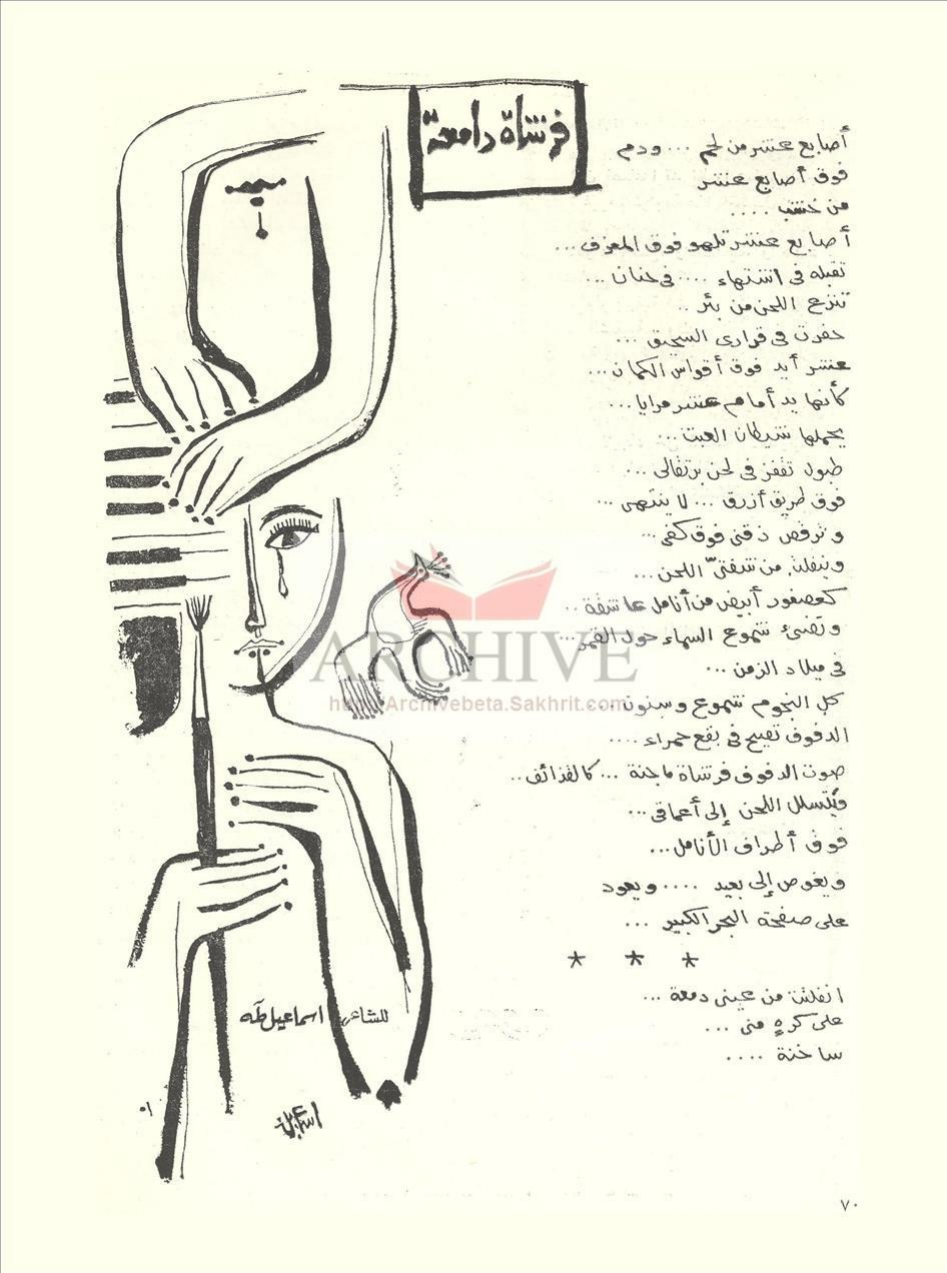 فرشاة دامعة
أصابع عشر من لحم ... ودم
فوق أصابع عشر
من خشب ....
أصابع عشر تلهو فوق المعزف ...
تقبله فى اشتهاء .... فى حنان ...
تنزع اللحن من بئر ..
حفرت فى قرارى السحيق ...
عشر أيد فوق أقواس الكمان ...
كأنها يد أمام عشر مرايا ...
يحملها شيطان العبث ...
طبول تقفز فى لحن برتقالى ...
فوق طريق أزرق ... لا ينتهى ...
وترقص ذقنى فوق كفى ...
وينفلت من شفتىّ اللحن ...
كعصفور أبيض من أنامل عاشقة ...
وتضئ شموع السماء حول القمر ...
فى ميلاد الزمن ...
كل النجوم شموع وسنون ...
الدفوف تصيح فى بقع حمراء ....
صوت الدفوف فرشاة ماجنة ... كالقذائف ..
ويتسلل اللحن إلى أعماقى ...
فوق أطراف الأنامل ...
ويغوص إلى بعيد .... ويعود
على صفحة البحر الكبير ...
* * *
انفلتت من عينى دمعة ...
على كرهٍ منى ...
ساخنة ....
للشاعر: اسماعيل طه
ARCHIVE
http://Archivebeta.Sakhrit.com
٧٠